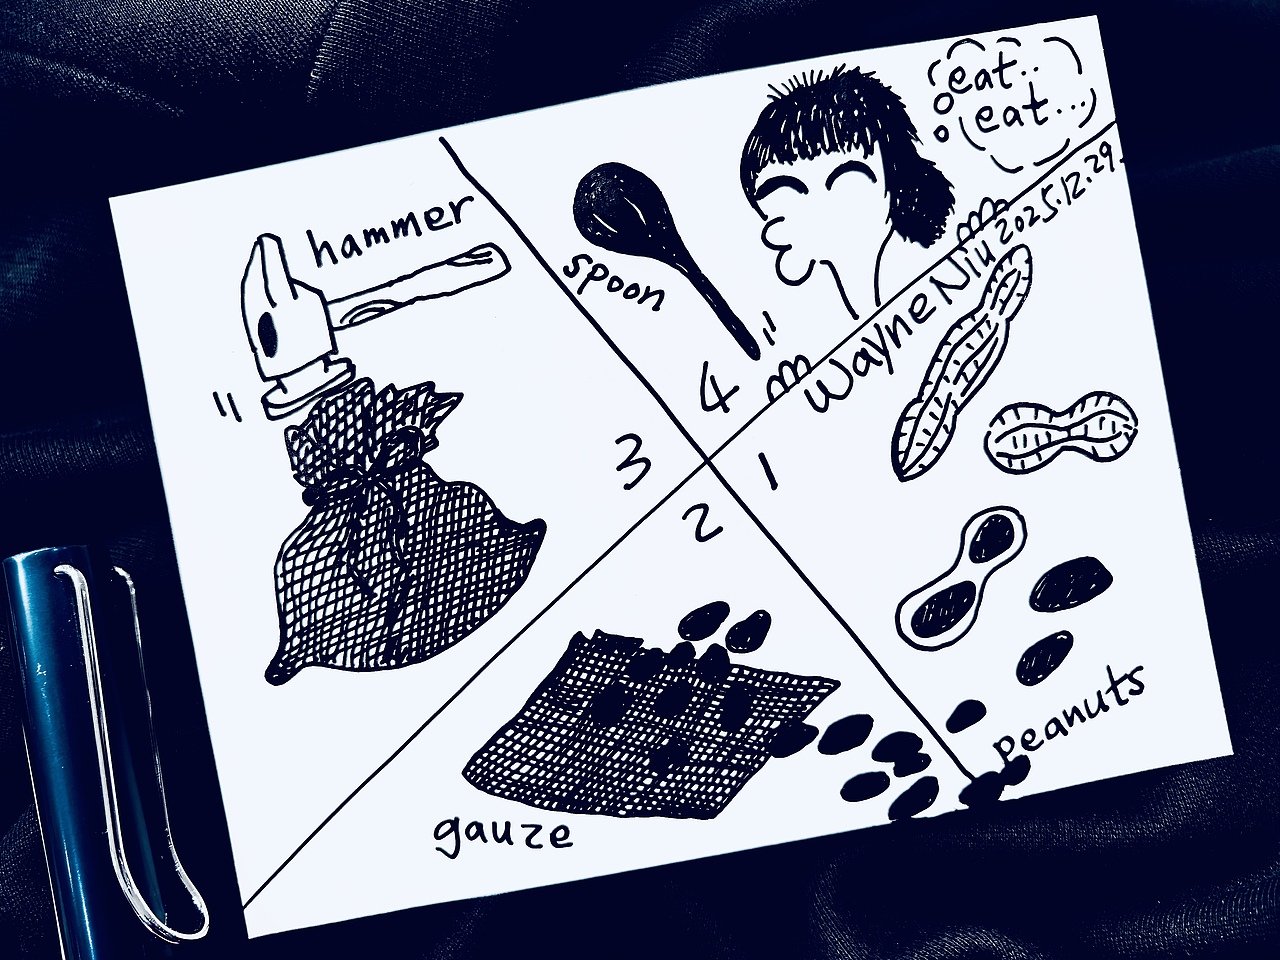 hammer
spoon
eat..
eat...
4
Wayne Niu 2025.12.29.
3
1
2
Peanuts
gauze